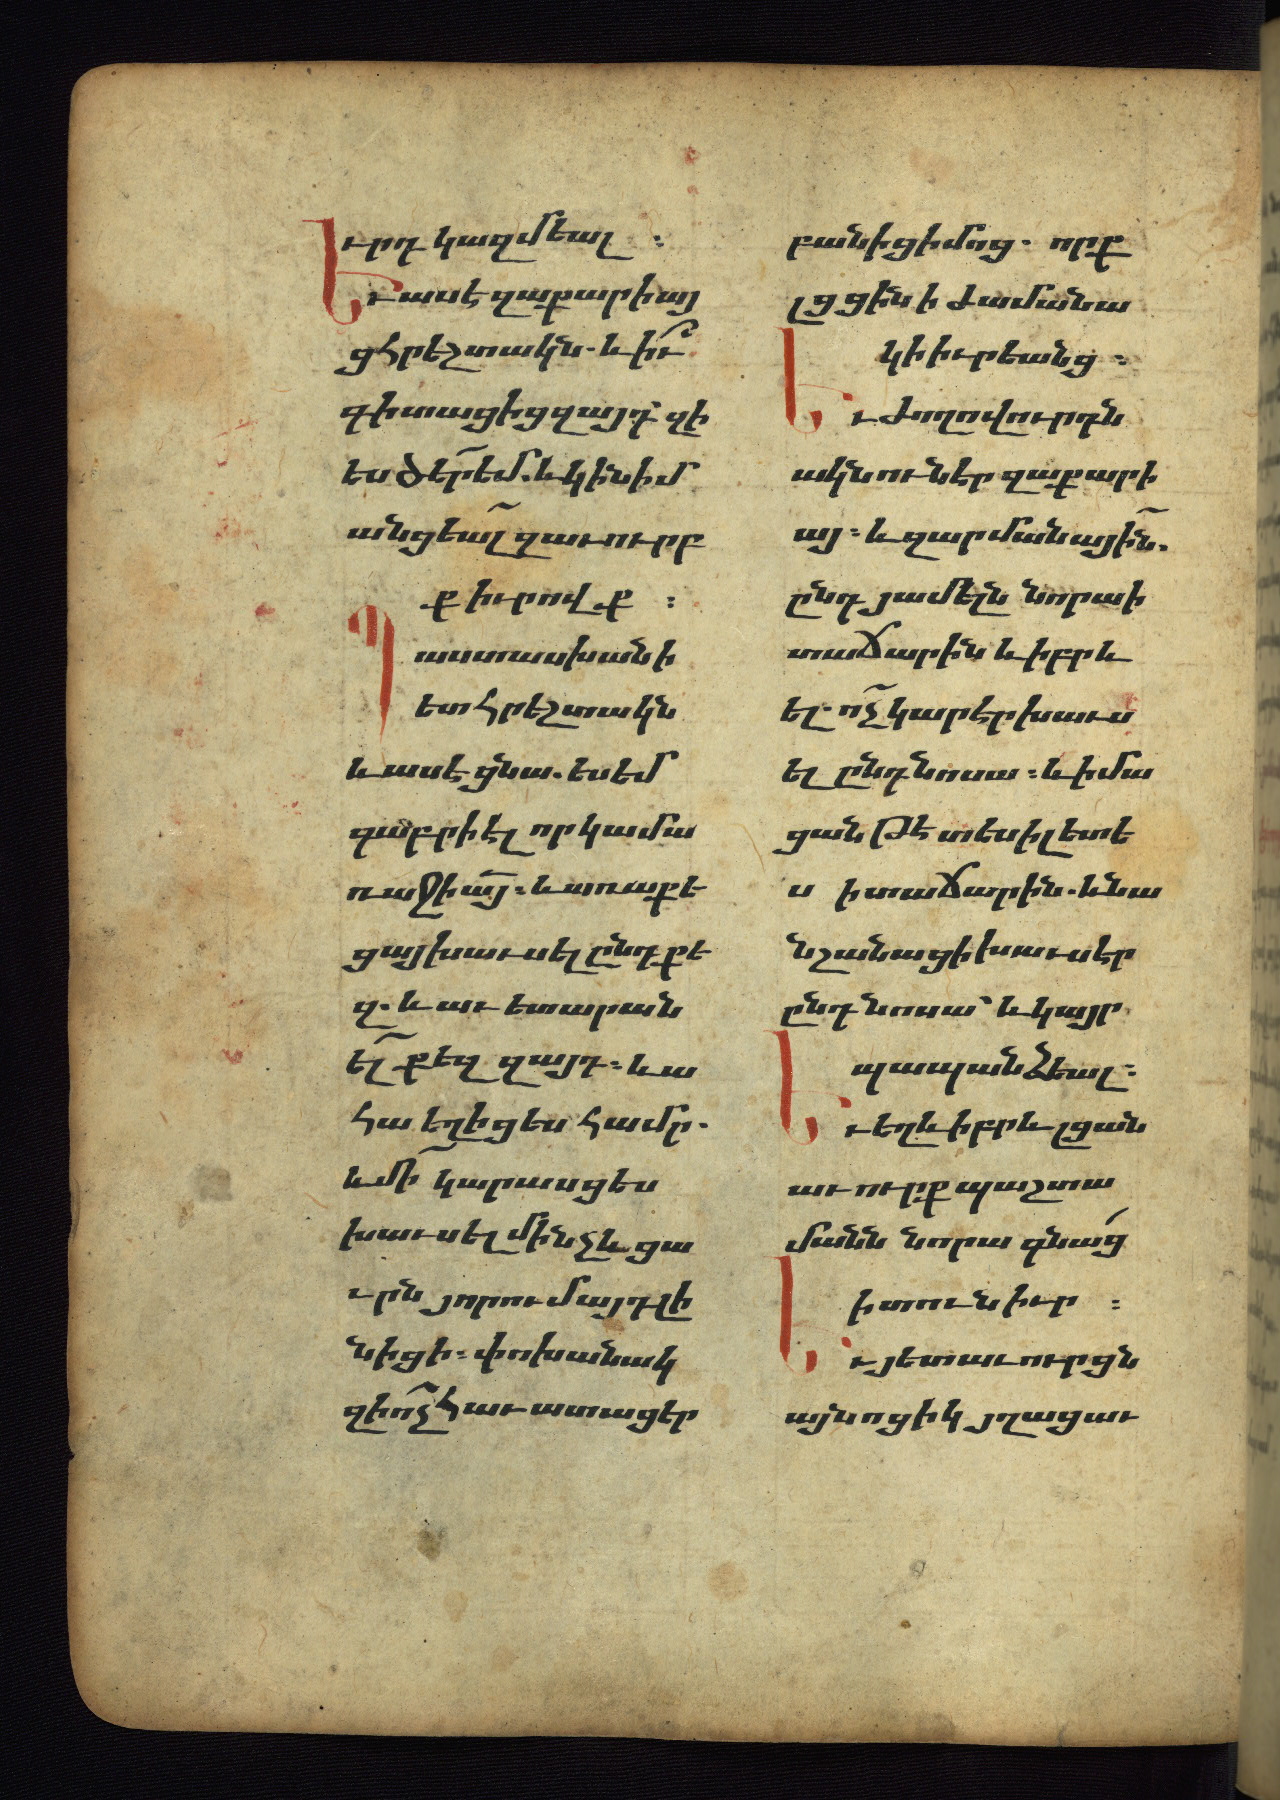 ւրդ կազմեալ ։
Եւ ասէ զաքարիայ
ցհրեշտակն. և իւ̅
գիտացից զայդ՝ զի
ես ծե̅ր եմ. և կին իմ
անցեա̅լ զաւուրբ
ք իւրովք ։
Պատասխանի
ետ հրեշտակն
և ասէ ցնա. ես եմ
գաբրիէլ որ կամ ա
ռաջի ա̅յ ։ և առաքե
ցայ խաւսել ընդ քե
զ. և աւետարան
ե̅լ քեզ զայդ ։ և ա
հա եղիցես համր.
և մի̅ կարասցես
խաւսել մինչև ցա
ւրն յորում այդ լի
նիցի ։ փոխանակ
զի ո̅չ հաւատացեր
բանից իմոց. որք
լցցին ի ժամանա
կի իւրեանց ։
Եւ ժողովուրդն
ակն ունէր զաքարի
այ ։ և զարմանայի̅ն.
ընդ յամելն նորա ի
տաճարին և իբրև
ել. ո̅չ կարէր խաւս
ել ընդ նոսա ։ և իմա
ցան թէ տեսիլ ետե
ս ի տաճարին. և նա
նշանացի խաւսէր
ընդ նոսա՝ և կայր
պապանձեալ ։
Եւ եղև իբրև լցան
աւուրք պաշտա
մանն նորա գնաց
ի տուն իւր ։
Եւ յետ աւուրցն
այնոցիկ յղացաւ